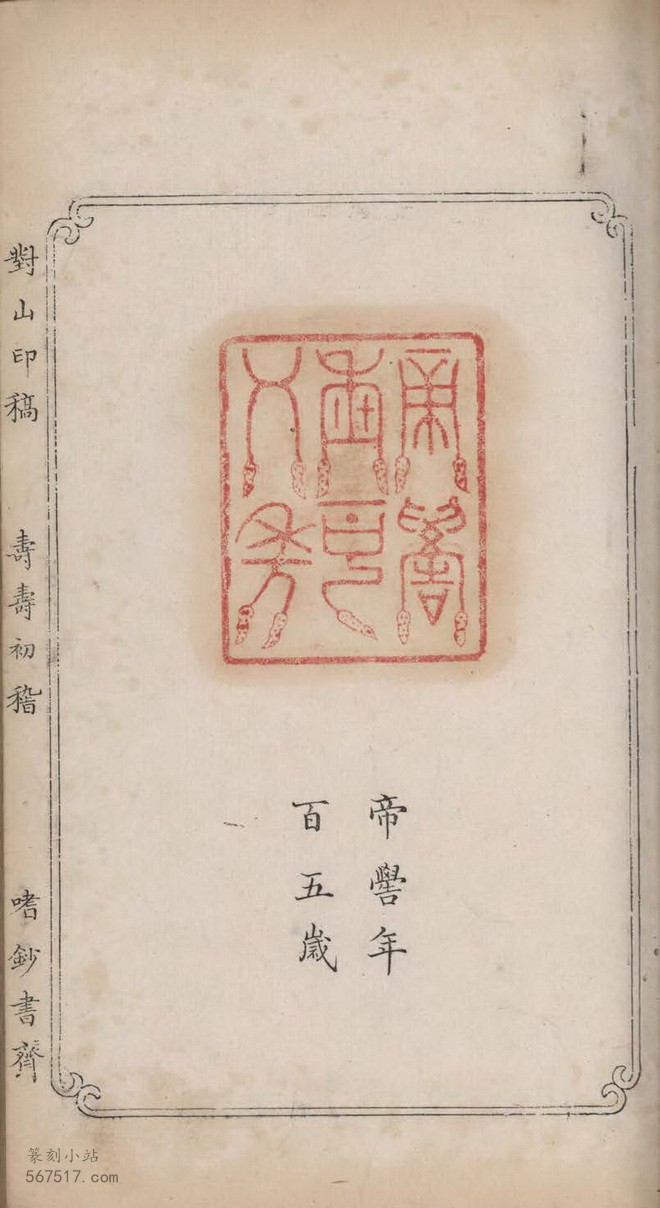 帝嚳年
百五歲
對山印稿
壽壽初稽
嗜鈔書齋
篆刻小站
567517.com